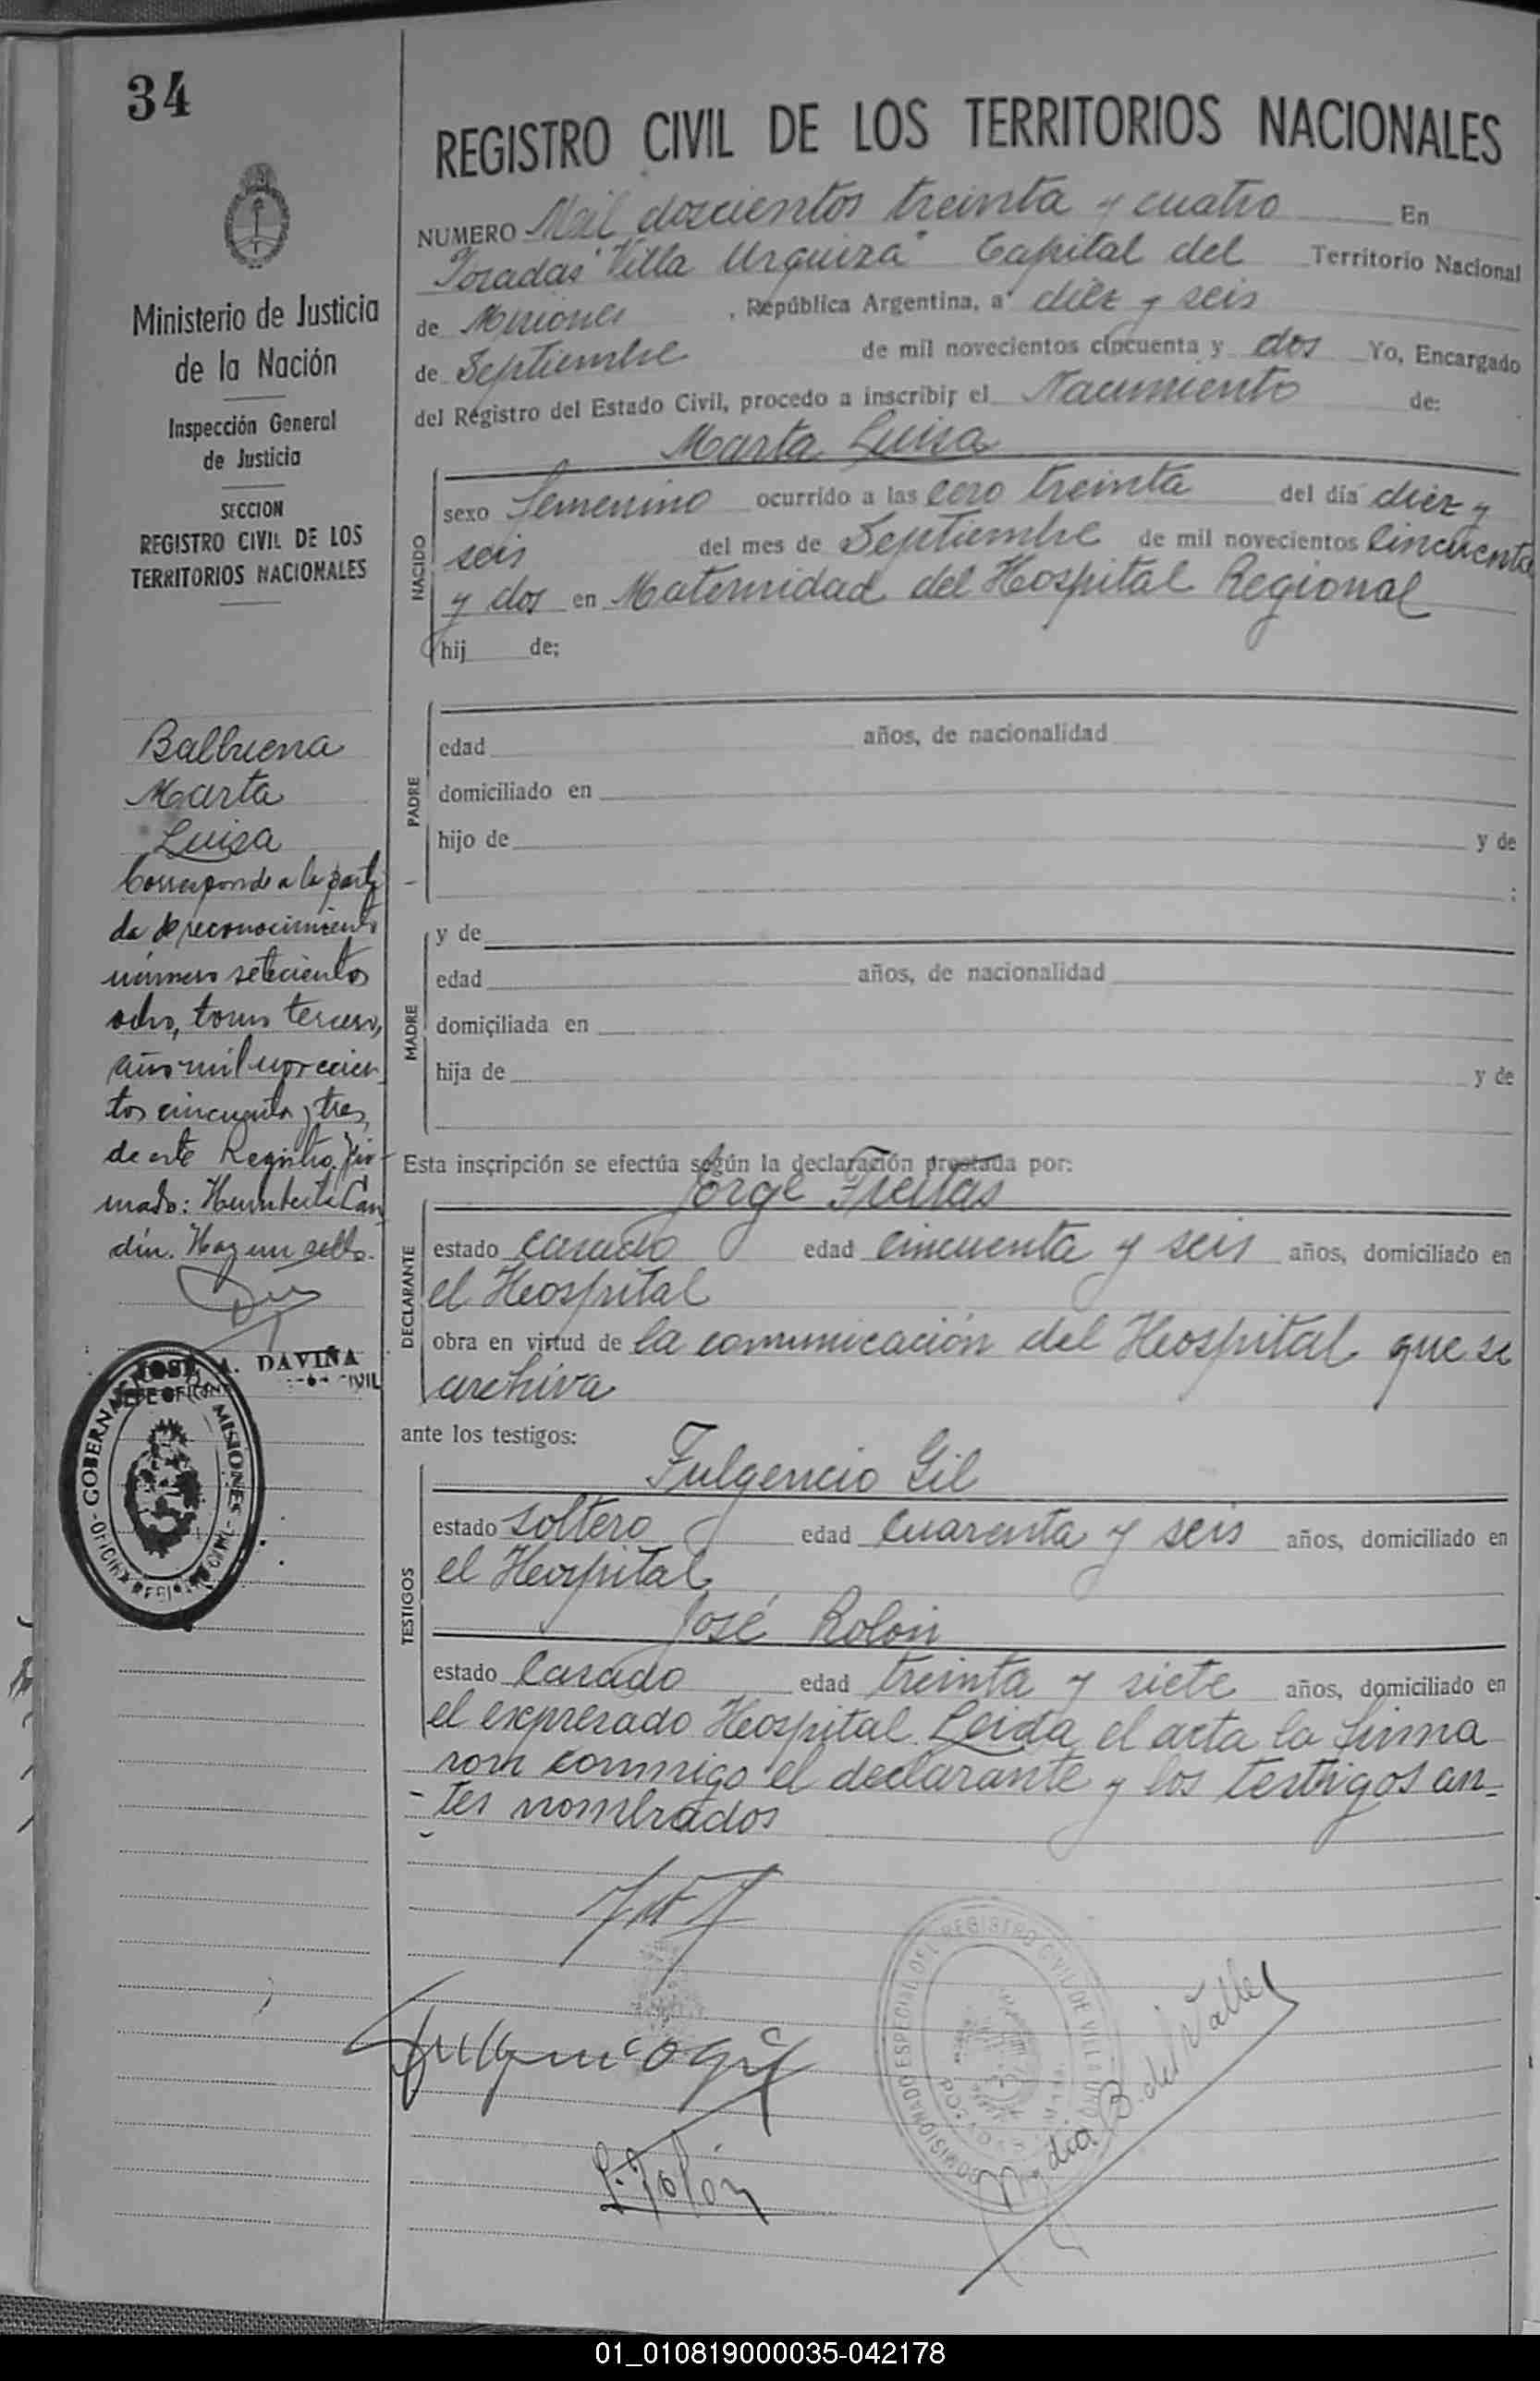 34
REGISTRO CIVIL DE LOS TERRITORIOS NACIONALES
NUMERO Mil doscientos treinta y cuatro En
Posadas "Villa Urquiza" Capital del Territorio Nacional
de Misiones, República Argentina, a diez y seis
de Septiembre de mil novecientos cincuenta y dos Yo, Encargado
del Registro del Estado Civil, procedo a inscribir el Nacimiento de:
Marta Luisa
NACIDO
sexo Femenino ocurrido a las cero treinta del día diez y
seis del mes de Septiembre de mil novecientos cincuenta
y dos en Maternidad del Hospital Regional
hij de:
PADRE
edad años, de nacionalidad
domiciliado en
hijo de y de
:
MADRE
y de
edad años, de nacionalidad
domiciliada en
hija de y de
Esta inscripción se efectúa según la declaración prestada por:
Jorge Freitas
DECLARANTE
estado casado edad cincuenta y seis años, domiciliado en
el Hospital
obra en virtud de la comunicación del Hospital que se
archiva
ante los testigos:
Fulgencio Gil
TESTIGOS
estado soltero edad cuarenta y seis años, domiciliado en
el Hospital
José Rolón
estado Casado edad treinta y siete años, domiciliado en
el expresado Hospital Leida el acta la firma
ron conmigo el declarante y los testigos an-
tes nombrados
Fulgencio gil
Rolón
B. del Valle
COMISIONADO ESPECIAL DEL REGISTRO CIVIL DE VILLA URQUIZA
POSADAS
Ministerio de Justicia
de la Nación
Inspección General
de Justicia
SECCION
REGISTRO CIVIL DE LOS
TERRITORIOS NACIONALES
Balbuena
Marta
Luisa
Corresponde a la parti
da de reconocimiento
número setecientos
ocho, tomo tercero,
año mil novecien
tos cincuenta y tres,
de este Registro. Fir-
mado: Humberto Can
dín. Hay un sello.
JOSE A. DAVIÑA
JEFE OFICINA CIVIL
GOBERNACION MISIONES
OFICINA REGISTRO CIVIL
01_010819000035-042178